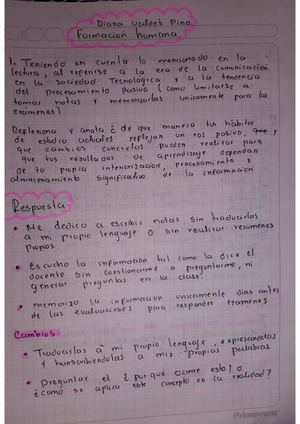 Diana Valdes Pino
Formación humana
1. Teniendo en cuenta lo mencionado en la
lectura, al referirse a la era de la comunicación
en la sociedad Tecnológica y a la tendencia
del procesamiento pasivo (como limitarse a
tomar notas y memorizarlas unicamente para los
exámenes)
Reflexiona y anota ¿de que manera tus hábitos
de estudio actuales reflejan un rol pasivo, y
que cambios concretos pueden realizar para
que tus resultados de aprendizaje dependan
de tu propia interiorización, procesamiento y
almacenamiento significativo de la información
Respuesta
• Me dedico a escribir notas sin traducirlas
a mi propio lenguaje o sin realizar resumenes
propios
• Escucho la información tal como la dice el
docente sin cuestionarme o preguntarme, ni
generar preguntas en la clase.
• memorizo la información unicamente dias antes
de las evaluaciones para responder exámenes
Cambios
• Traducirlas a mi propio lenguaje, expresandolas
y transcribiendolas a mis propias palabras
• Preguntar el ¿por qué ocurre esto? o
¿como se aplica este concepto en la realidad?
Primavera